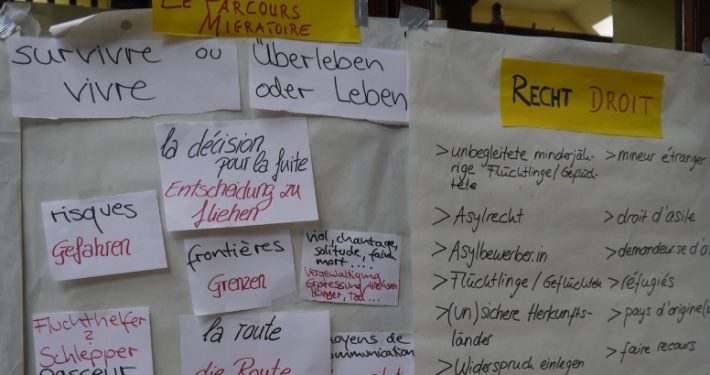 Le Parcours
Migratoire
survivre ou
vivre
Überleben
oder Leben
la décision
pour la fuite
Entscheidung zu
fliehen
risques
Gefahren
frontières
Grenzen
viol, chantage,
solitude, faim
mort ....
Vergewaltigung
Erpressung,
Hunger, Tod ...
Fluchthelfer
?
Schlepper
passeur
la route
die Route
moyens de
communication
RECHT DROIT
> unbegleitete minderjäh-
rige Flüchtlinge/
> Asylrecht
> Asylbewerber.in
> Flüchtlinge / Geflüchtete
> (un)sichere Herkunfts-
länder
> Widerspruch einlegen
> mineur étranger
> droit d'asile
> demandeur.se d'a
> réfugiés
> pays d'origine(
> faire recours